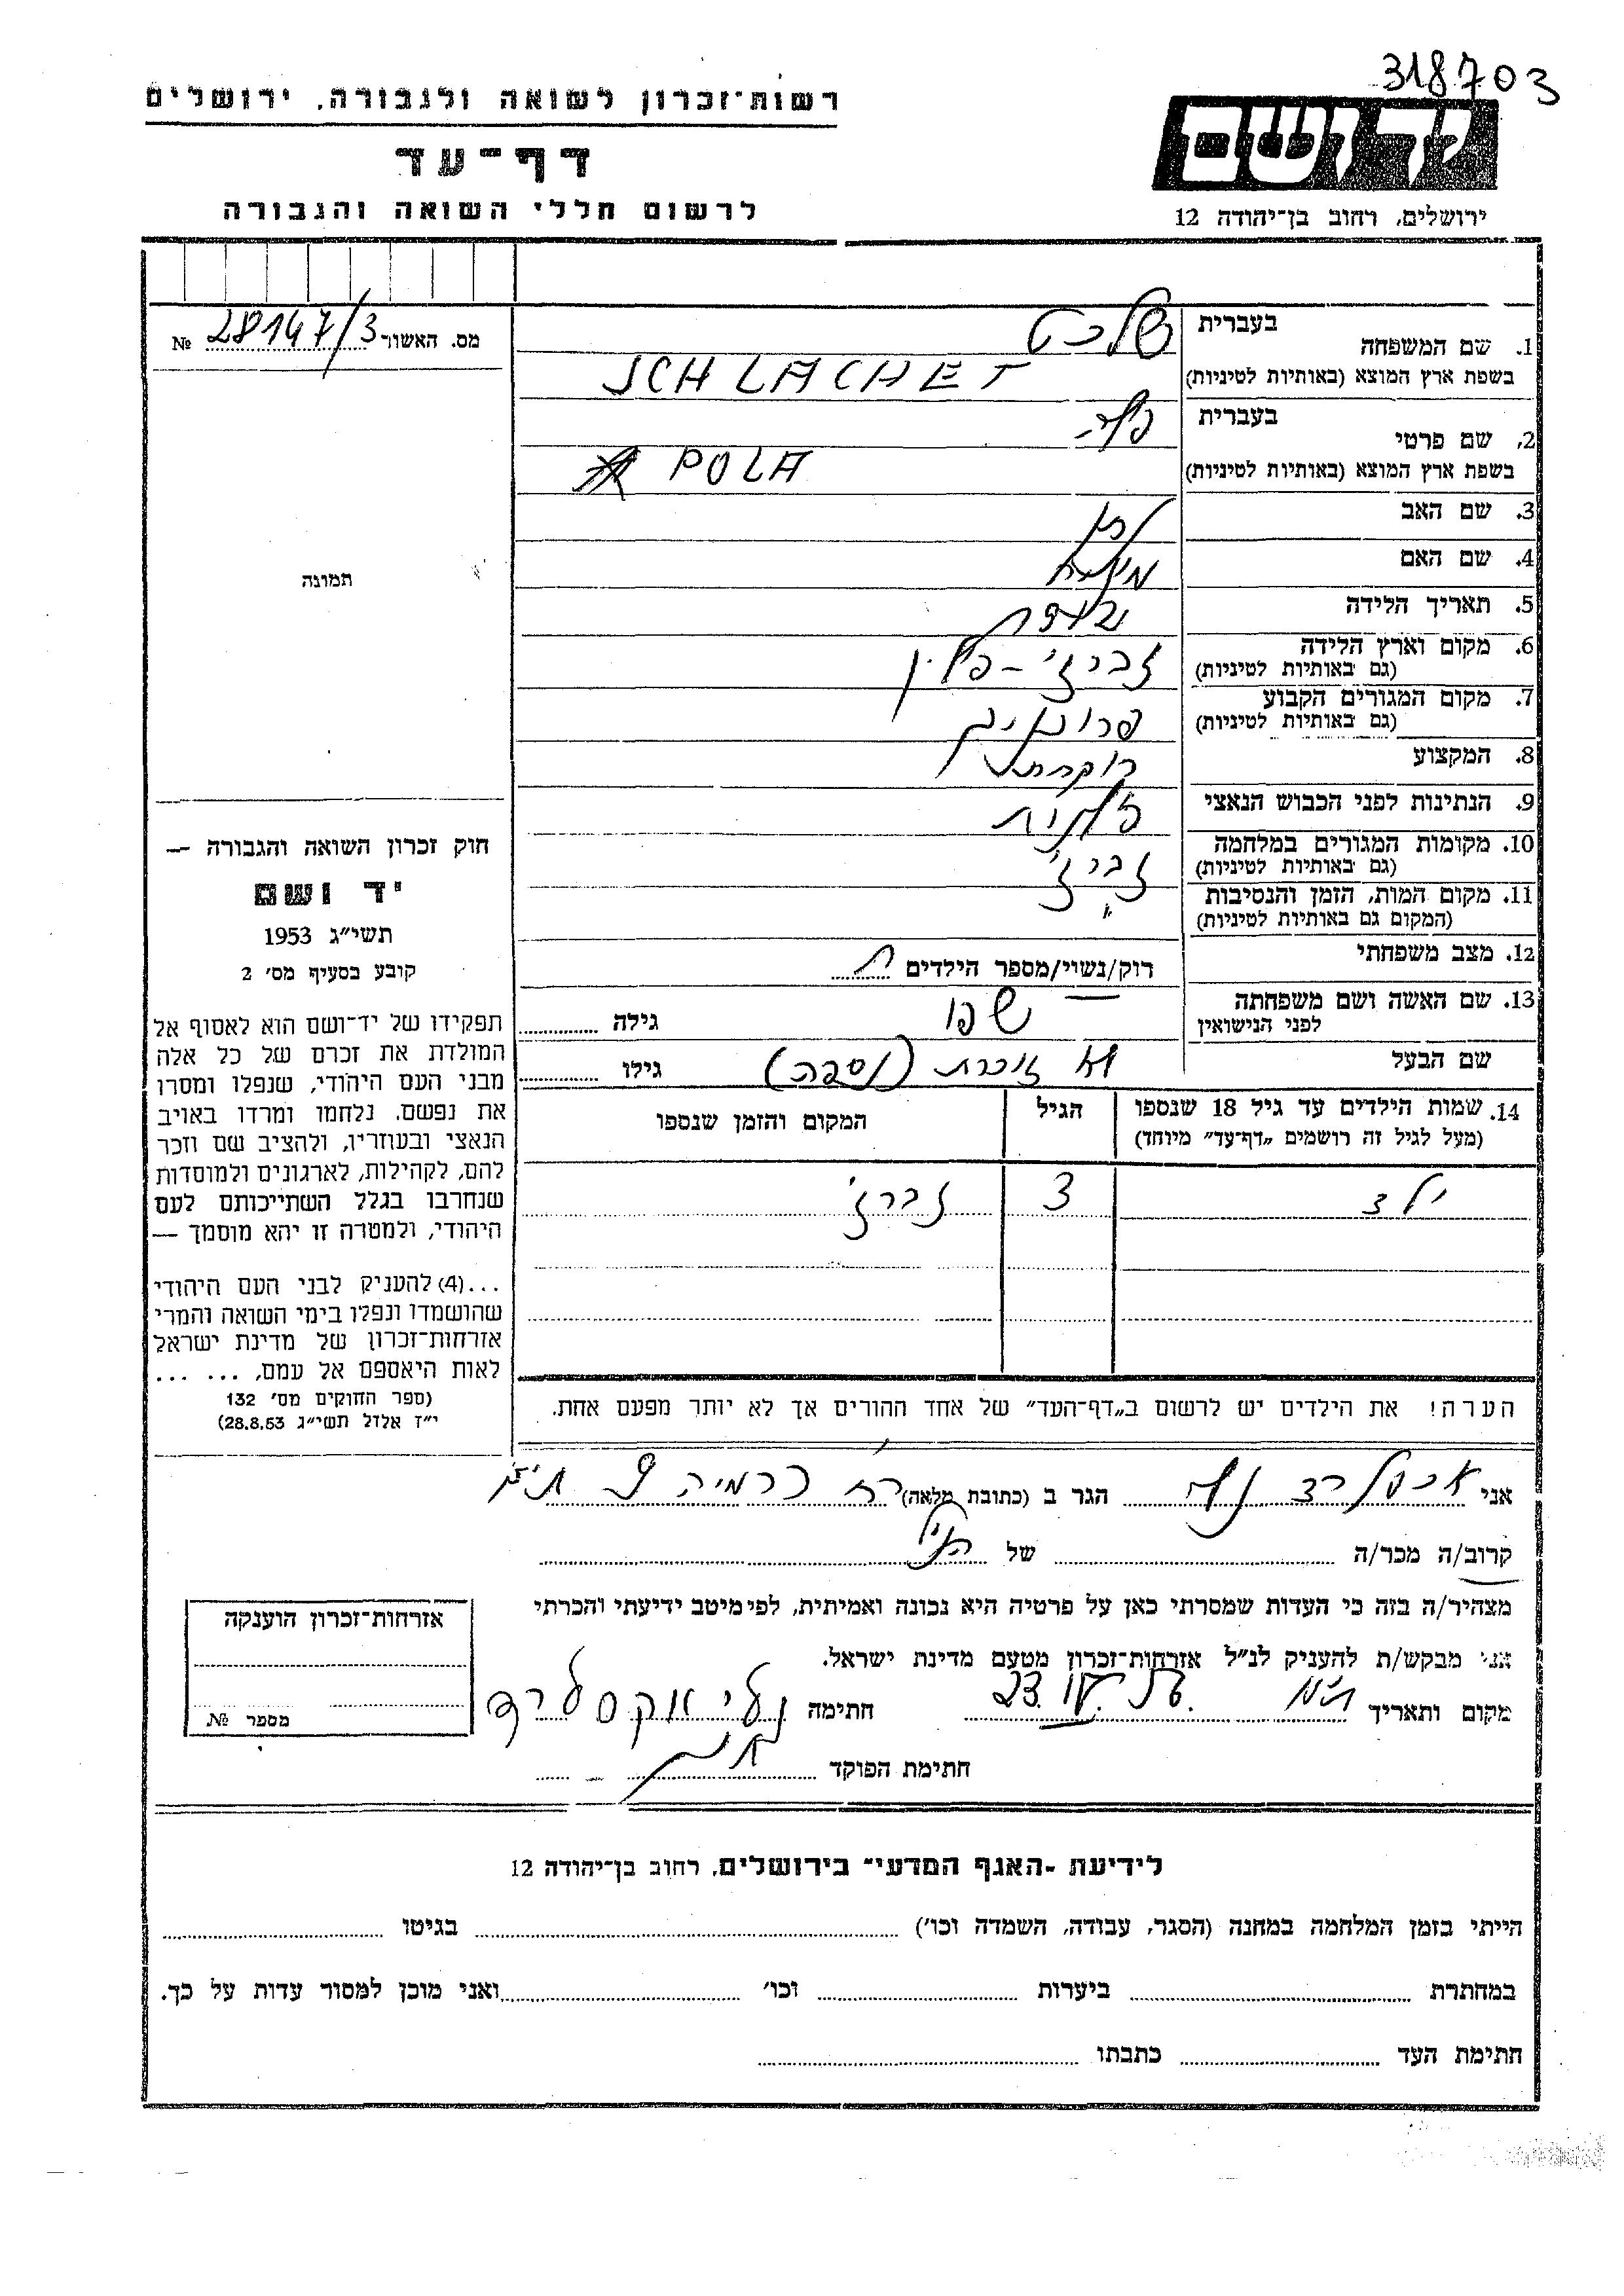 318703
רשות־זכרון לשואה ולגבורה, ירושלים
יד ושם
דף־עד
לרשום חללי השואה והגבורה
ירושלים, רחוב בן־יהודה 12
מס. האשור № 28147/3
1. שם המשפחה בעברית שלכט
בשפת ארץ המוצא (באותיות לטיניות) SCHLACHET
2. שם פרטי בעברית פולה
בשפת ארץ המוצא (באותיות לטיניות) POLA
3. שם האב
4. שם האם
5. תאריך הלידה
6. מקום וארץ הלידה (גם באותיות לטיניות) זברז' – פולין
7. מקום המגורים הקבוע (גם באותיות לטיניות)
8. המקצוע רוקחת
9. הנתינות לפני הכבוש הנאצי פולנית
10. מקומות המגורים במלחמה (גם באותיות לטיניות) זברז'
11. מקום המות, הזמן והנסיבות (המקום גם באותיות לטיניות) "
12. מצב משפחתי רוק/נשוי/מספר הילדים
13. שם האשה ושם משפחתה לפני הנישואין גילה
שם הבעל לא זוכרת (נספה) גילו
14. שמות הילדים עד גיל 18 שנספו (מעל לגיל זה רושמים „דף־עד” מיוחד) הגיל המקום והזמן שנספו
ילד 3 זברז'
הערה! את הילדים יש לרשום ב„דף־העד” של אחד ההורים אך לא יותר מפעם אחת.
תמונה
חוק זכרון השואה והגבורה —
יד ושם
תשי״ג 1953
קובע בסעיף מס׳ 2
תפקידו של יד־ושם הוא לאסוף אל
המולדת את זכרם של כל אלה
מבני העם היהודי, שנפלו ומסרו
את נפשם, נלחמו ומרדו באויב
הנאצי ובעוזריו, ולהציב שם וזכר
להם, לקהילות, לארגונים ולמוסדות
שנחרבו בגלל השתייכותם לעם
היהודי, ולמטרה זו יהא מוסמך —
...(4) להעניק לבני העם היהודי
שהושמדו ונפלו בימי השואה והמרי
אזרחות־זכרון של מדינת ישראל
לאות היאספם אל עמם, ... ...
(ספר החוקים מס׳ 132
י״ז אלול תשי״ג 28.8.53)
אני אכסלרד נלי הגר ב (כתובת מלאה) רח' כרמיה 9 ת"א
קרוב/ה מכר/ה של הנ"ל
מצהיר/ה בזה כי העדות שמסרתי כאן על פרטיה היא נכונה ואמיתית, לפי מיטב ידיעתי והכרתי
אני מבקש/ת להעניק לנ״ל אזרחות־זכרון מטעם מדינת ישראל.
מקום ותאריך ת"א 23.IV.56. חתימה נלי אקסלרד
חתימת הפוקד
אזרחות־זכרון הוענקה
מספר №
לידיעת „האגף המדעי״ בירושלים, רחוב בן־יהודה 12
הייתי בזמן המלחמה במחנה (הסגר, עבודה, השמדה וכו׳) בגיטו
במחתרת ביערות וכו׳ ואני מוכן למסור עדות על כך.
חתימת העד כתבתו